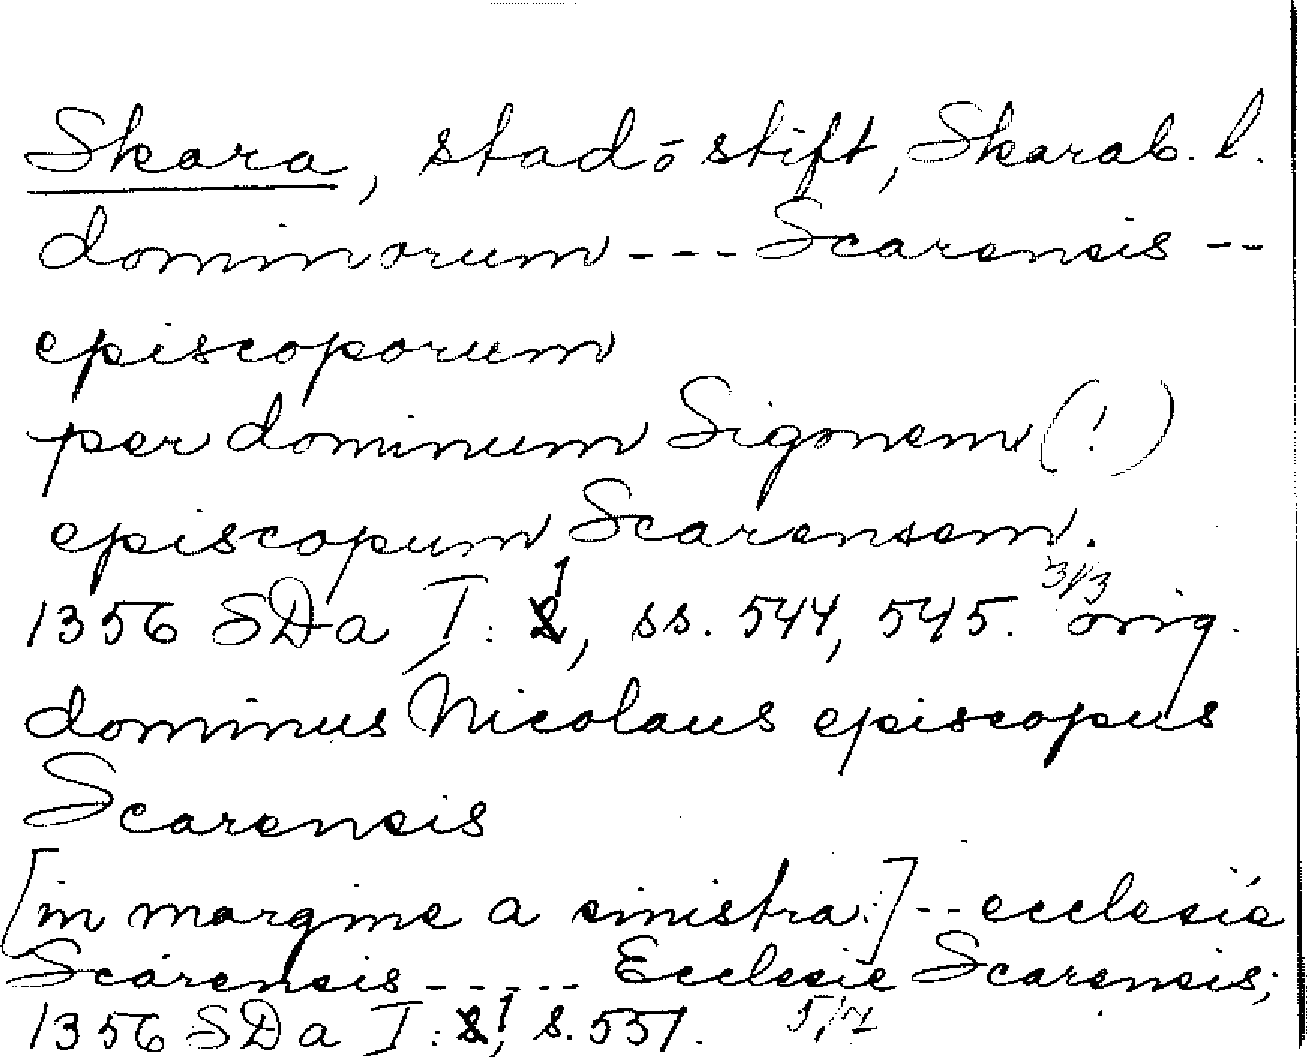 Skara, stad o stift, Skarab. l.
dominorum --- Scarensis --
episcoporum
per dominum Sigonem (!)
episcopum Scarensem.
3/3
1356 SDa I: 1, ss. 544, 545. orig.
dominus Nicolaus episcopus
Scarensis
[in margine a sinistra:] -- ecclesie
Scarensis ----- Ecclesie Scarensis;
1356 SDa I: 1, s. 551. 5/7